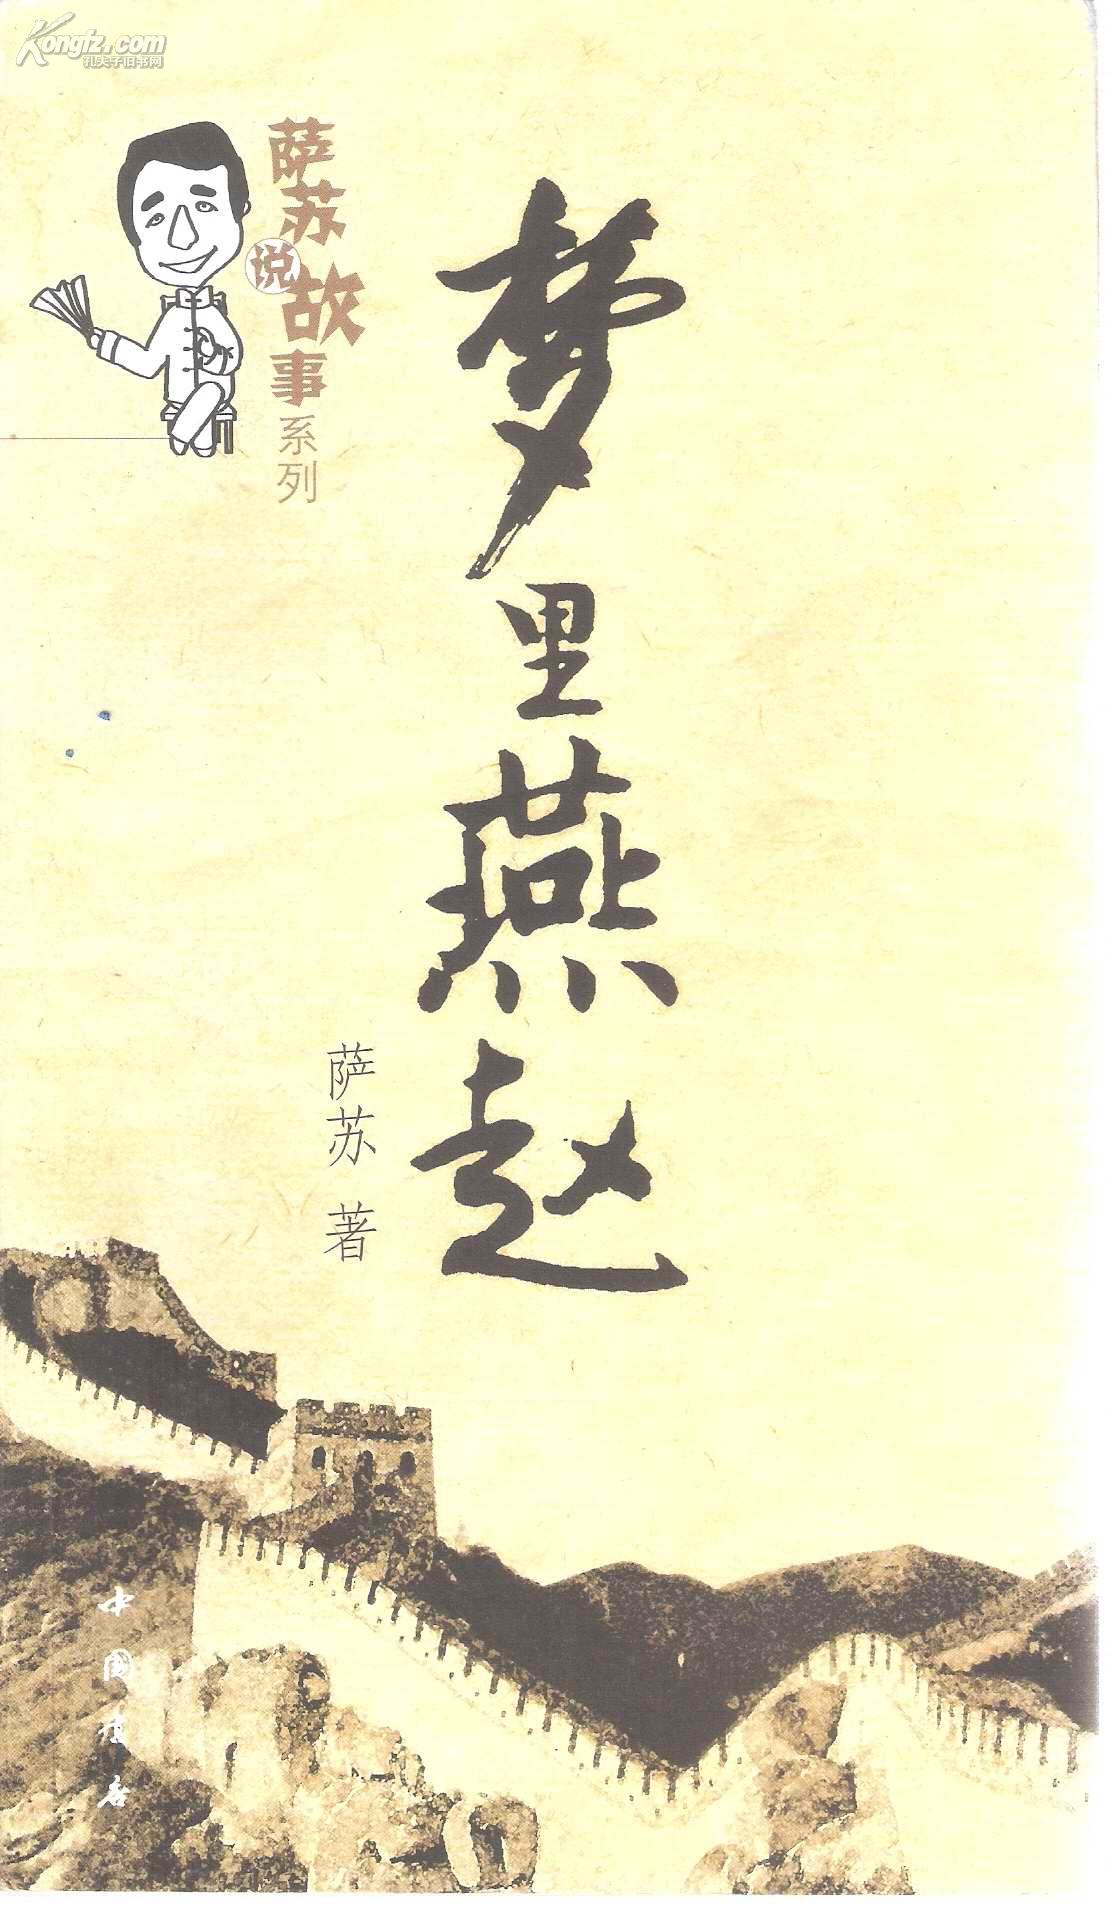 Kongfz.com
孔夫子旧书网
萨苏说故事系列
梦里燕赵
萨苏 著
中国书店